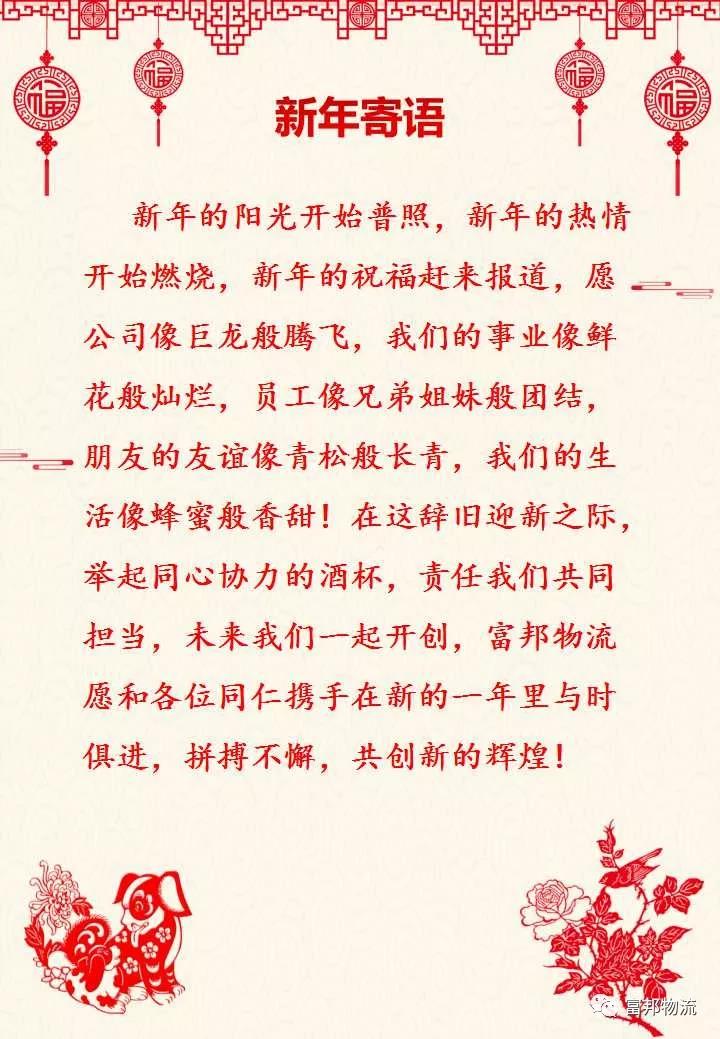 福
福
福
福
新年寄语
新年的阳光开始普照，新年的热情
开始燃烧，新年的祝福赶来报道，愿
公司像巨龙般腾飞，我们的事业像鲜
花般灿烂，员工像兄弟姐妹般团结，
朋友的友谊像青松般长青，我们的生
活像蜂蜜般香甜！在这辞旧迎新之际，
举起同心协力的酒杯，责任我们共同
担当，未来我们一起开创，富邦物流
愿和各位同仁携手在新的一年里与时
俱进，拼搏不懈，共创新的辉煌！
富邦物流